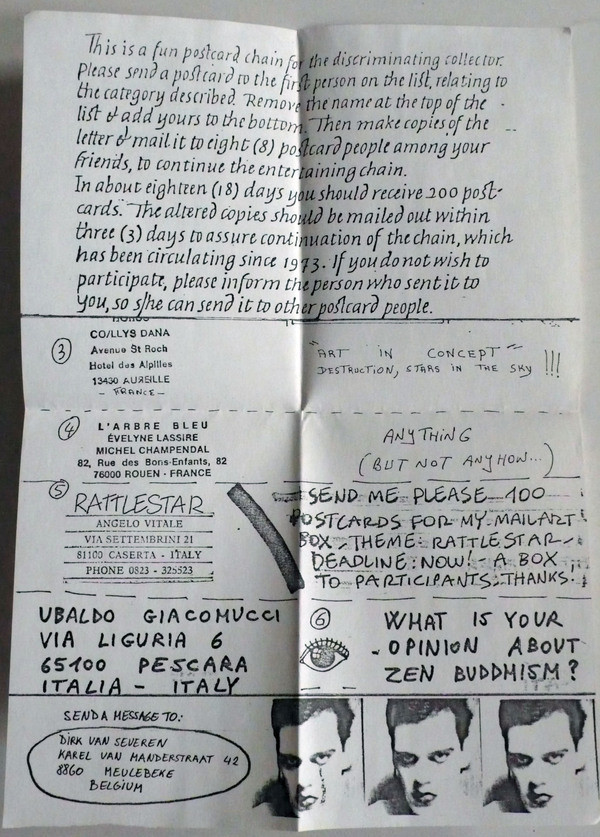 This is a fun postcard chain for the discriminating collector.
Please send a postcard to the first person on the list, relating to
the category described. Remove the name at the top of the
list & add yours to the bottom. Then make copies of the
letter & mail it to eight (8) postcard people among your
friends, to continue the entertaining chain.
In about eighteen (18) days you should receive 200 post-
cards. The altered copies should be mailed out within
three (3) days to assure continuation of the chain, which
has been circulating since 1973. If you do not wish to
participate, please inform the person who sent it to
you, so s/he can send it to other postcard people.
3
CO/LLYS DANA
Avenue St Roch
Hotel des Alpilles
13430 AUREILLE
- FRANCE -
"ART IN CONCEPT"
DESTRUCTION, STARS IN THE SKY !!!
4
L'ARBRE BLEU
ÉVELYNE LASSIRE
MICHEL CHAMPENDAL
82, Rue des Bons-Enfants, 82
76000 ROUEN - FRANCE
ANYTHING
(BUT NOT ANYHOW...)
5
RATTLESTAR
ANGELO VITALE
VIA SETTEMBRINI 21
81100 CASERTA - ITALY
PHONE 0823 - 325523
SEND ME PLEASE 100
POSTCARDS FOR MY MAILART
BOX - THEME: RATTLESTAR -
DEADLINE: NOW! - A BOX
TO PARTICIPANTS. THANKS.
UBALDO GIACOMUCCI
VIA LIGURIA 6
65100 PESCARA
ITALIA - ITALY
6
WHAT IS YOUR
OPINION ABOUT
ZEN BUDDMISM?
SEND A MESSAGE TO:
DIRK VAN SEVEREN
KAREL VAN MANDERSTRAAT 42
8860 MEULEBEKE
BELGIUM